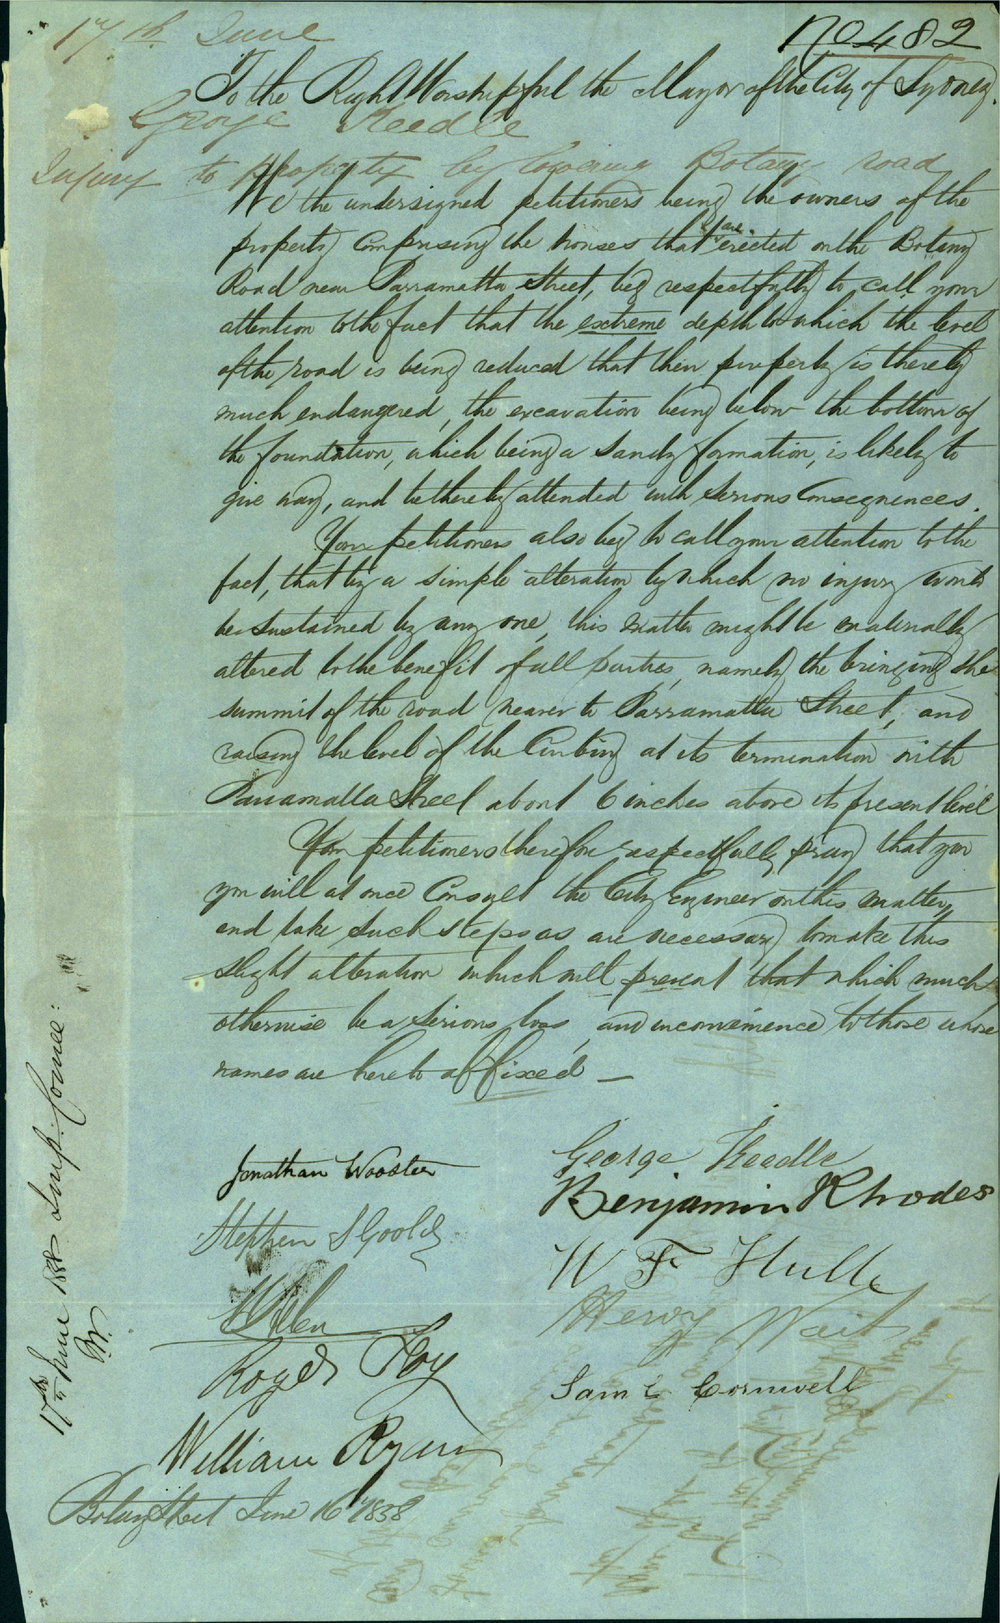 17th June
No 482
To the Right Worshipful the Mayor of the City of Sydney.
George Reedle
Injury to property by lowering Botany road
We the undersigned petitioners being the owners of the
property comprising the houses that are erected on the Botany
Road near Parramatta Street, beg respectfully to call your
attention to the fact that the extreme depth to which the level
of the road is being reduced that their property is thereby
much endangered, the excavation being below the bottom of
the foundation, which being a sandy formation, is likely to
give way, and be thereby attended with serious consequences.
Your petitioners also beg to call your attention to the
fact, that by a simple alteration by which no injury would
be sustained by any one, this matter might be materially
altered to the benefit of all parties, namely the bringing the
summit of the road nearer to Parramatta Street, and
raising the level of the Curbing at its termination with
Parramatta Street about 6 inches above its present level
Your petitioners therefore respectfully pray that you
you will at once Consult the City Engineer on this matter,
and take such steps as are necessary to make this
slight alteration which will prevent that which much
otherwise be a serious loss, and inconvenience to those whose
names are hereto affixed —
Jonathan Wooster
George Reedle
Benjamin Rhodes
Stephen S Goold
W F Hull
Allen
Henry Wait
Roger Foy
Saml Cornwell
William Ryan
Botany Street June 16th 1858
17th June 1858